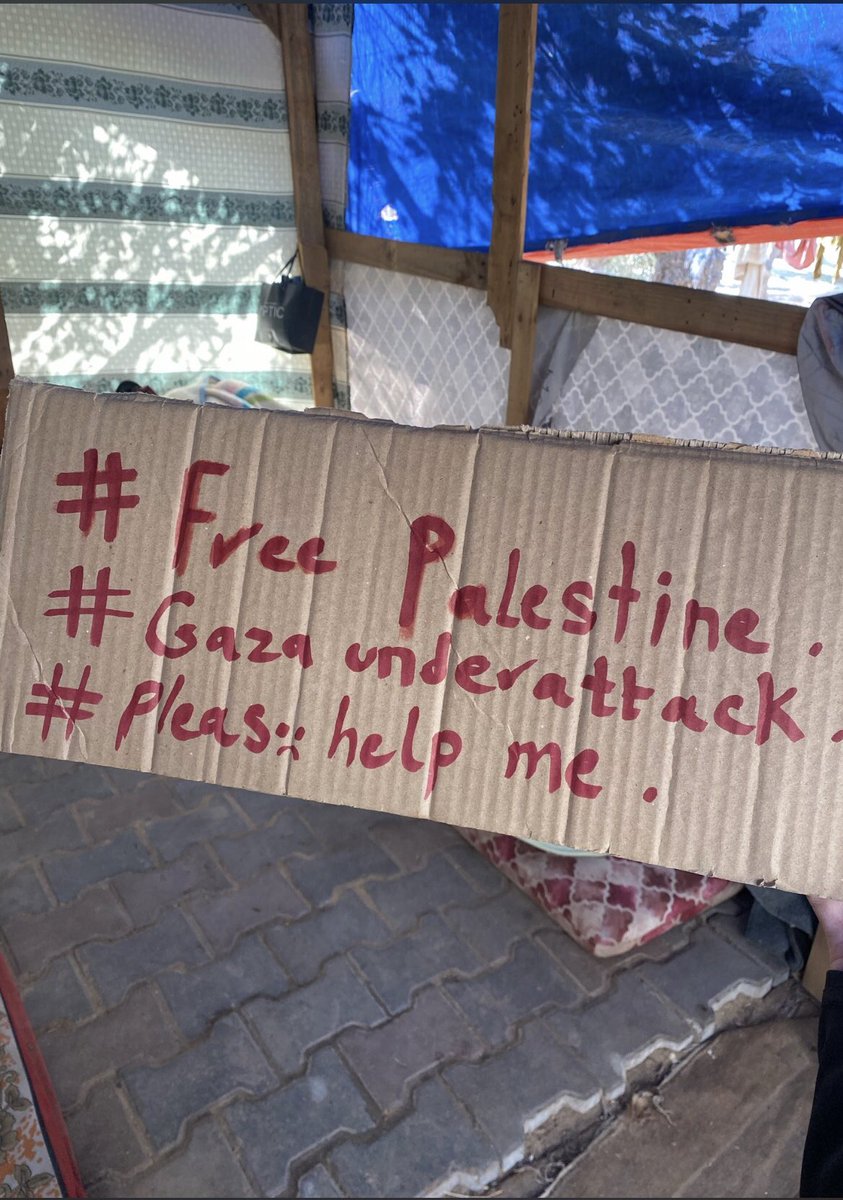 # Free Palestine.
# Gaza underattack.
# Pleas:: help me.
PTIC